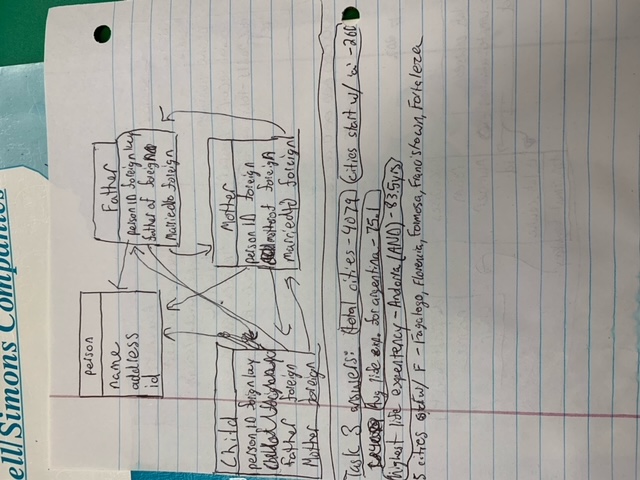 ell/Simons Companies
person
name
address
id
Father
person ID foreign key
father of foreign
Marriedto foreign
Child
person ID forign key
Father foreign
Mother foreign
Mother
person ID foreign
motherof foreign
marriedto foreign
Task 3 answers: total cities - 4079 cities start w/ - 260
Avg life exp. for argentina - 75.1
highest life expentency - Andorra (AND) - 83.5yrs
5 cities w/ F - Fagatogo, Florencia, Formosa, Francistown, Fortaleza